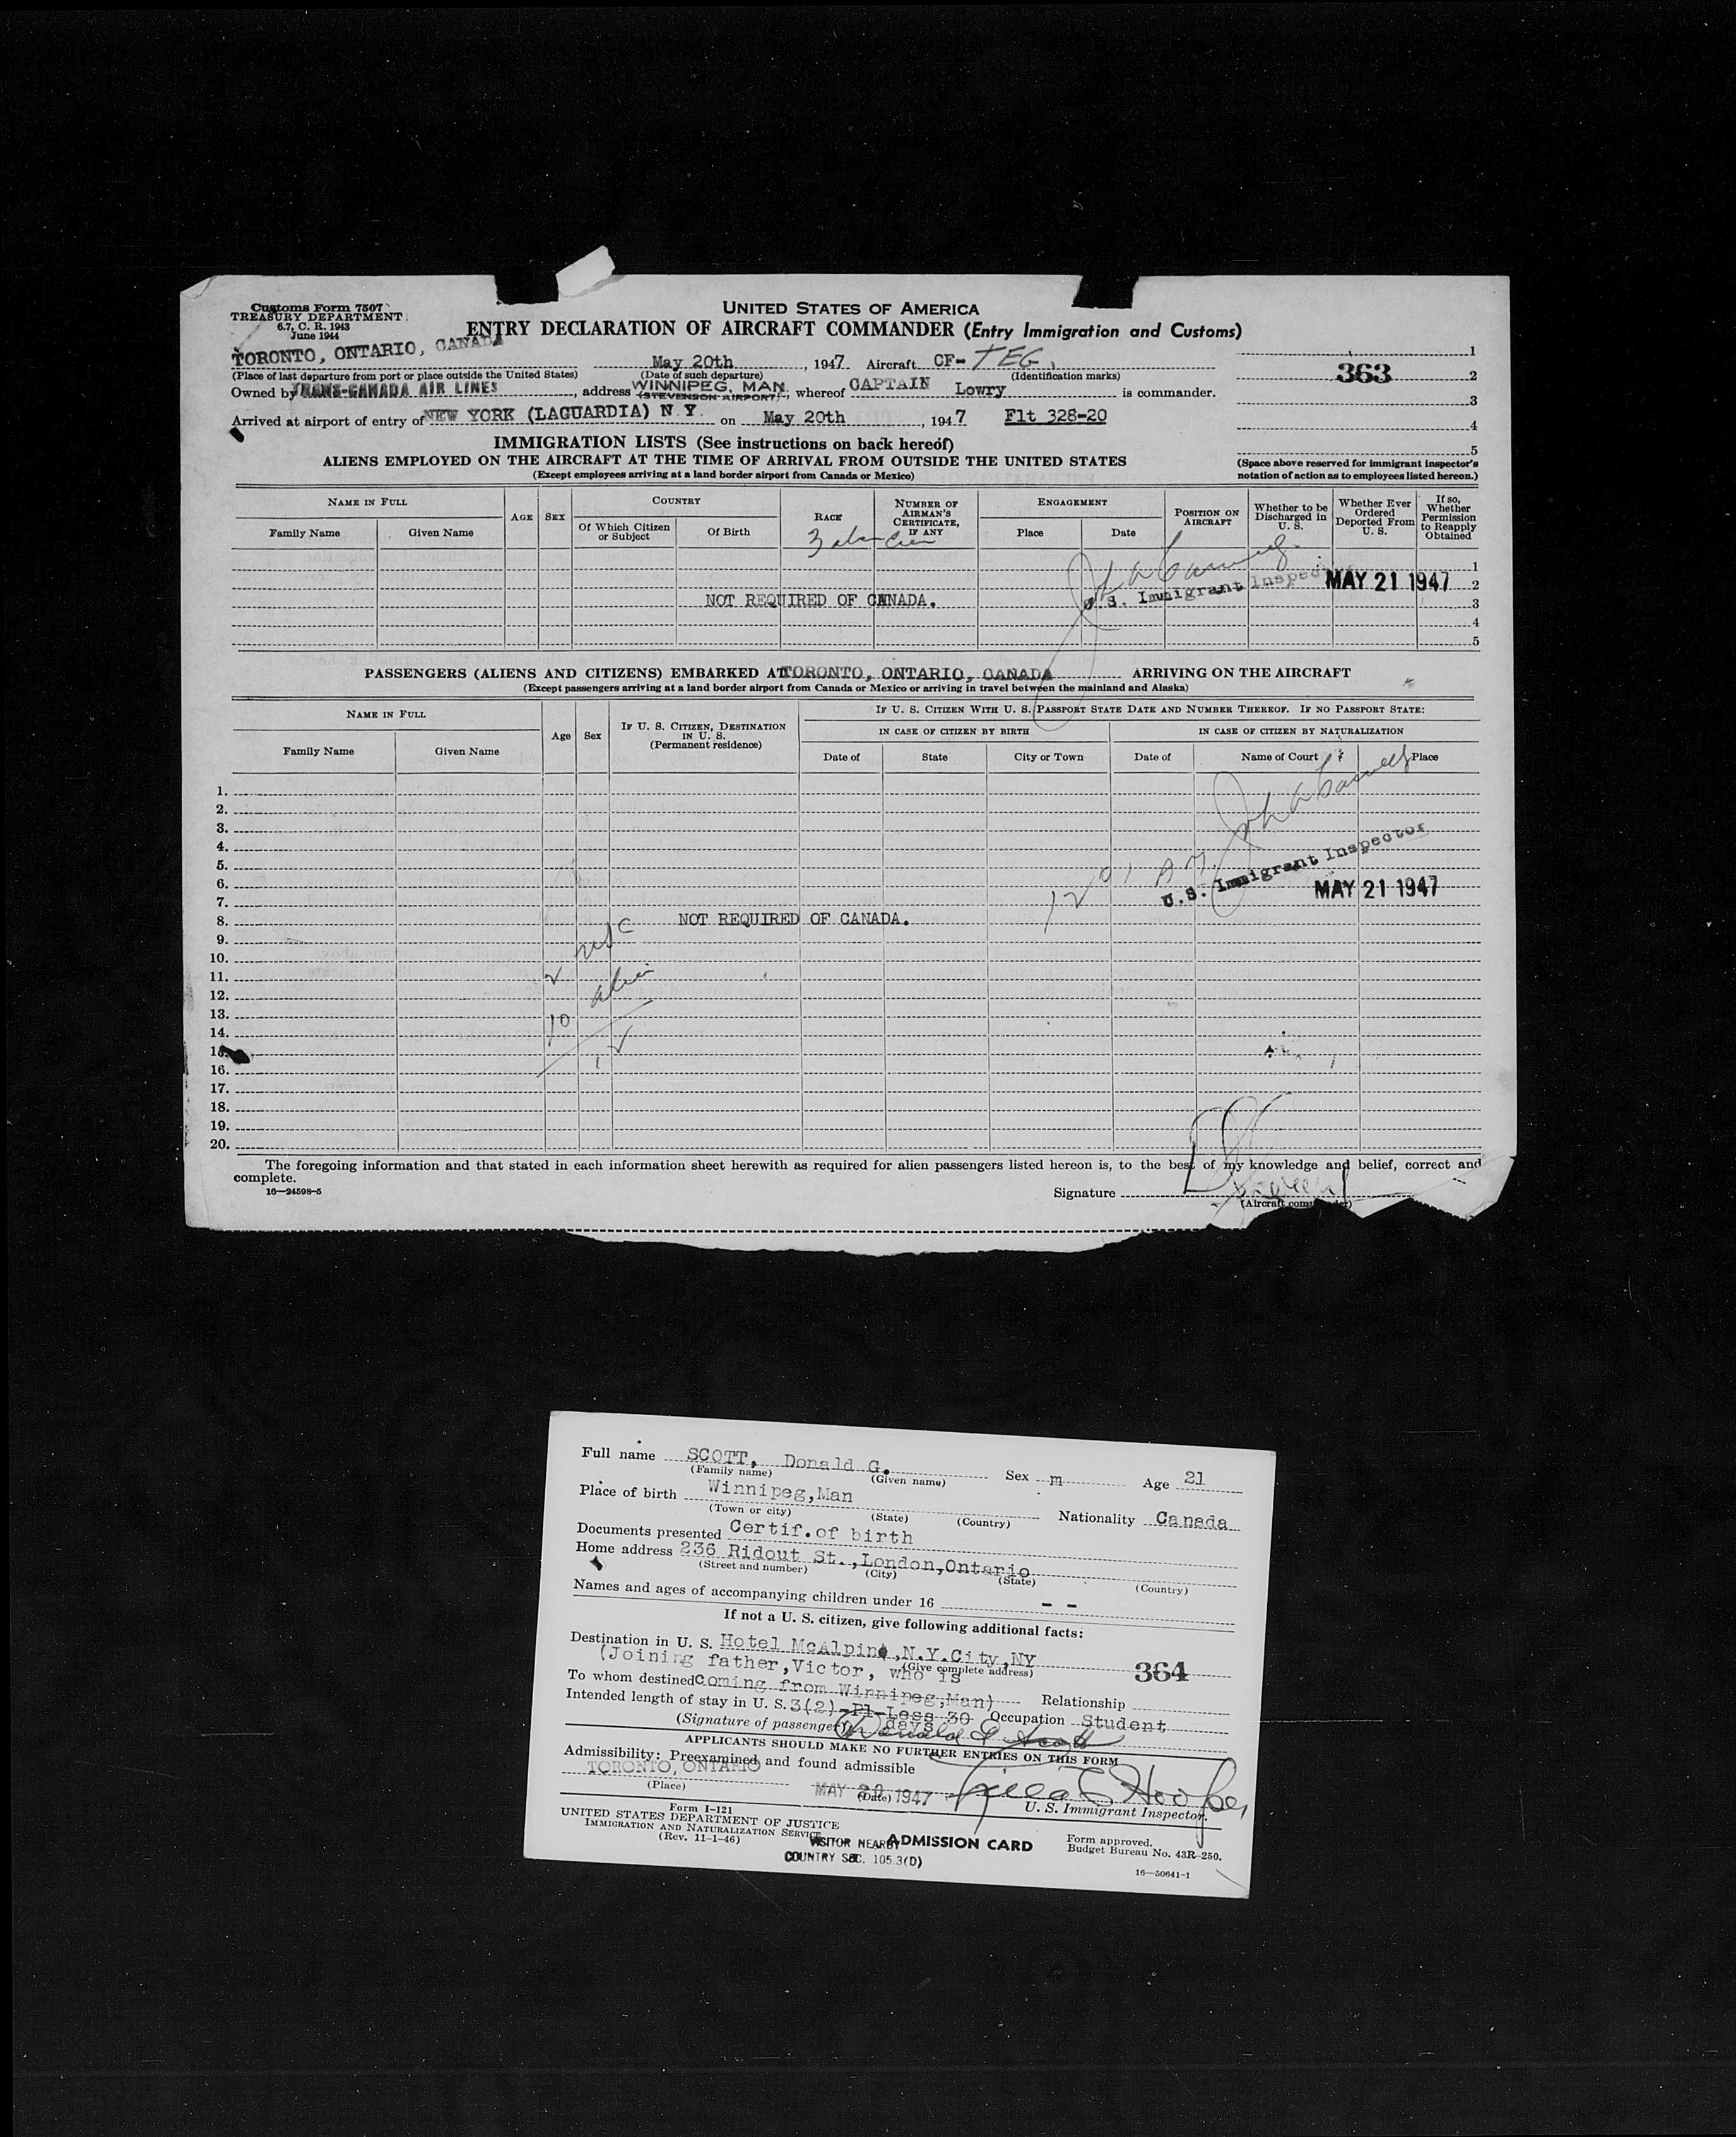 Customs Form 7507
TREASURY DEPARTMENT
6.7, C. R. 1943
June 1944
UNITED STATES OF AMERICA
ENTRY DECLARATION OF AIRCRAFT COMMANDER (Entry Immigration and Customs)
TORONTO, ONTARIO, CANADA May 20th, 1947 Aircraft CF- TEG, 1
(Place of last departure from port or place outside the United States) (Date of such departure) (Identification marks) 363 2
Owned by TRANS-CANADA AIR LINES, address WINNIPEG, MAN. (STEVENSON AIRPORT), whereof CAPTAIN Lowry is commander. 3
Arrived at airport of entry of NEW YORK (LAGUARDIA) N.Y. on May 20th, 1947 Flt 328-20 4
5
IMMIGRATION LISTS (See instructions on back hereof)
ALIENS EMPLOYED ON THE AIRCRAFT AT THE TIME OF ARRIVAL FROM OUTSIDE THE UNITED STATES
(Except employees arriving at a land border airport from Canada or Mexico)
(Space above reserved for immigrant inspector's notation of action as to employees listed hereon.)
NAME IN FULL AGE SEX COUNTRY RACE NUMBER OF AIRMAN'S CERTIFICATE, IF ANY ENGAGEMENT POSITION ON AIRCRAFT Whether to be Discharged in U. S. Whether Ever Ordered Deported From U. S. If so, Whether Permission to Reapply Obtained
Family Name Given Name Of Which Citizen or Subject Of Birth Place Date
3 alien Crew
1
U.S. Immigrant Inspector MAY 21 1947 2
NOT REQUIRED OF CANADA. 3
4
5
PASSENGERS (ALIENS AND CITIZENS) EMBARKED AT TORONTO, ONTARIO, CANADA ARRIVING ON THE AIRCRAFT
(Except passengers arriving at a land border airport from Canada or Mexico or arriving in travel between the mainland and Alaska)
NAME IN FULL Age Sex IF U. S. CITIZEN, DESTINATION IN U. S. (Permanent residence) IF U. S. CITIZEN WITH U. S. PASSPORT STATE DATE AND NUMBER THEREOF. IF NO PASSPORT STATE:
IN CASE OF CITIZEN BY BIRTH IN CASE OF CITIZEN BY NATURALIZATION
Family Name Given Name Date of State City or Town Date of Name of Court Place
1.
2.
3.
4.
5.
6.
U.S. Immigrant Inspector
12 01 AM
MAY 21 1947
7.
8. NOT REQUIRED OF CANADA.
9.
10. USC
11. 2
12. alien
13. 10
14. 12
15.
16.
17.
18.
19.
20.
The foregoing information and that stated in each information sheet herewith as required for alien passengers listed hereon is, to the best of my knowledge and belief, correct and
complete.
16—24598-5
Signature
(Aircraft commander)
Full name SCOTT, Donald G. Sex m Age 21
(Family name) (Given name)
Place of birth Winnipeg,Man Nationality Canada
(Town or city) (State) (Country)
Documents presented Certif.of birth
Home address 236 Ridout St.,London,Ontario
(Street and number) (City) (State) (Country)
Names and ages of accompanying children under 16 - -
If not a U. S. citizen, give following additional facts:
Destination in U. S. Hotel McAlpine,N.Y.City,NY
(Give complete address)
(Joining father,Victor, who is 364
To whom destined coming from Winnipeg,Man) Relationship
Intended length of stay in U. S. 3(2)-Pl-Less 30 days Occupation Student
(Signature of passenger) Donald G Scott
APPLICANTS SHOULD MAKE NO FURTHER ENTRIES ON THIS FORM
Admissibility: Preexamined and found admissible
TORONTO, ONTARIO MAY 20 1947
(Place) (Date) U. S. Immigrant Inspector.
Form I-121
UNITED STATES DEPARTMENT OF JUSTICE
IMMIGRATION AND NATURALIZATION SERVICE
(Rev. 11-1-46)
VISITOR NEARBY
COUNTRY SEC. 105.3(D)
ADMISSION CARD
Form approved.
Budget Bureau No. 43R-250.
16—50641-1